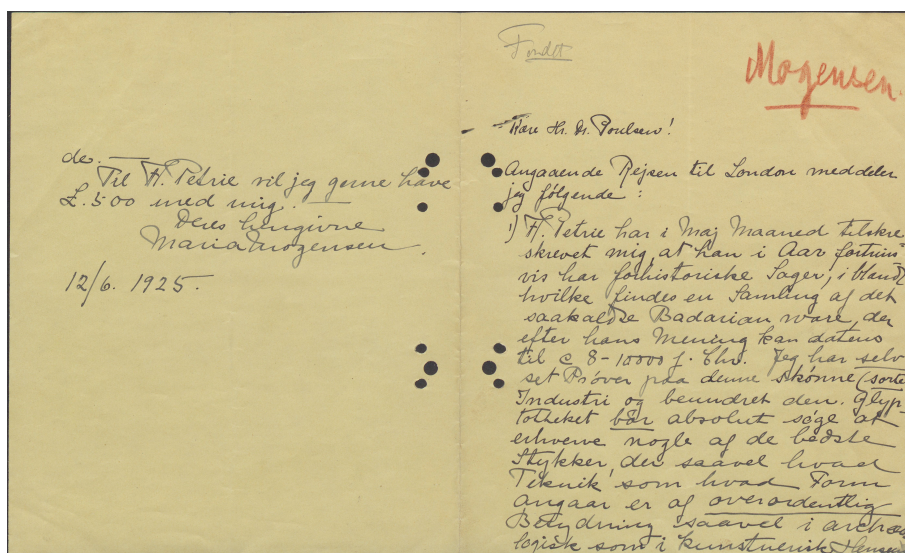 de. —
Til Fl. Petrie vil jeg gerne have
£. 500 med mig. —
Deres hengivne
Maria Mogensen.
12/6. 1925.
Fondet
Mogensen.
Kære Hr. Dr. Poulsen!
Angaaende Rejsen til London meddeler
jeg følgende:
1) Fl. Petrie har i Maj Maaned tilskre
skrevet mig, at han i Aar fortrins
vis har forhistoriske Sager, i blandt
hvilke findes en Samling af det
saakaldte Badarian ware, der
efter hans Mening kan dateres
til c 8-10000 f. Chr. Jeg har selv
set Prøver paa denne skønne (sorte
Industri og beundret den. Glyp-
totheket bør absolut søge at
erhverve nogle af de bedste
Stykker, der saavel hvad
Teknik som hvad Form
angaar er af overordentlig
Betydning saavel i archæo
logisk som i kunstnerisk Hensee